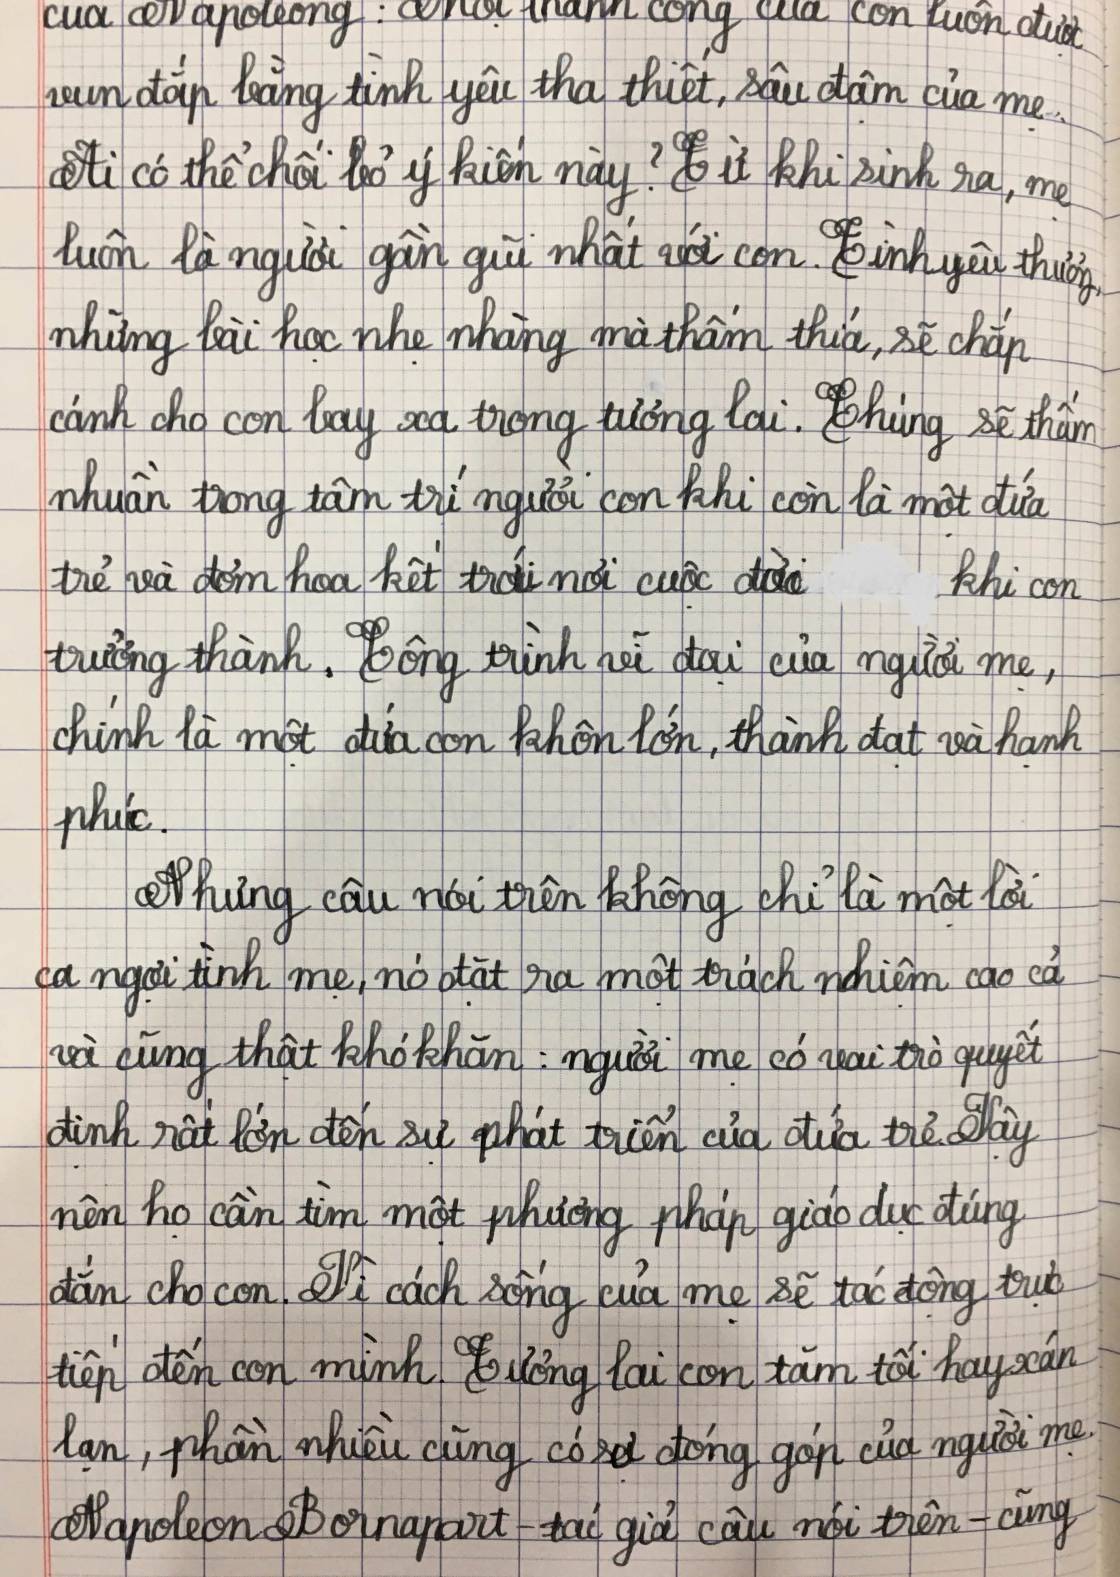 của Napoleong: Mọi thành công của con luôn được
vun đắp bằng tình yêu tha thiết, sâu đậm của mẹ.
Ai có thể chối bỏ ý kiến này? Từ khi sinh ra, mẹ
luôn là người gần gũi nhất với con. Tình yêu thương,
những bài học nhẹ nhàng mà thấm thía, sẽ chắp
cánh cho con bay xa trong tương lai. Chúng sẽ thấm
nhuần trong tâm trí người con khi còn là một đứa
trẻ và đơm hoa kết trái nơi cuộc đời khi con
trưởng thành. Công trình vĩ đại của người mẹ,
chính là một đứa con khôn lớn, thành đạt và hạnh
phúc.
Nhưng câu nói trên không chỉ là một lời
ca ngợi tình mẹ, nó đặt ra một trách nhiệm cao cả
và cũng thật khó khăn: người mẹ có vai trò quyết
định rất lớn đến sự phát triển của đứa trẻ. Vậy
nên họ cần tìm một phương pháp giáo dục đúng
đắn cho con. Vì cách sống của mẹ sẽ tác động trực
tiếp đến con mình. Tương lai con tăm tối hay xán
lạn, phần nhiều cũng có sự đóng góp của người mẹ.
Napoleon Bornapart - tác giả câu nói trên - cũng